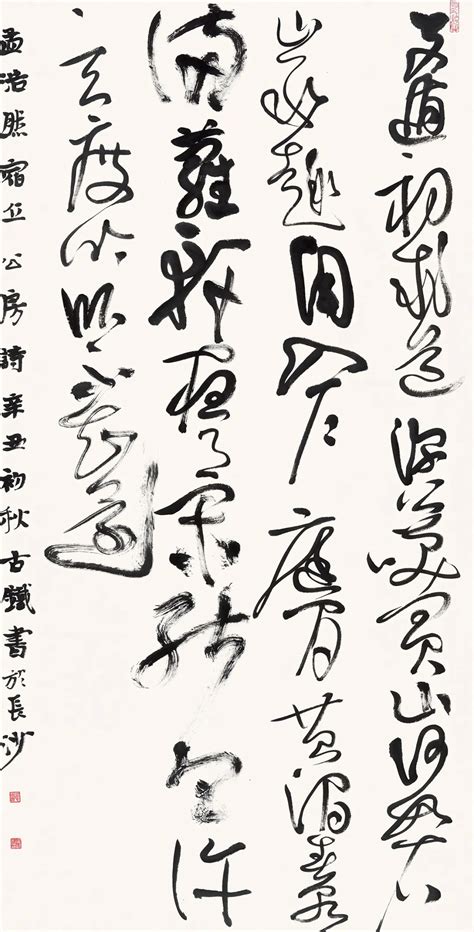 支遁初求道深公笑買山何如石
巖趣自入户庭間苔澗春泉
滿蘿軒夜月閑能令許
玄度吟臥不知還
孟浩然宿立公房詩辛丑初秋古鐵書於長沙